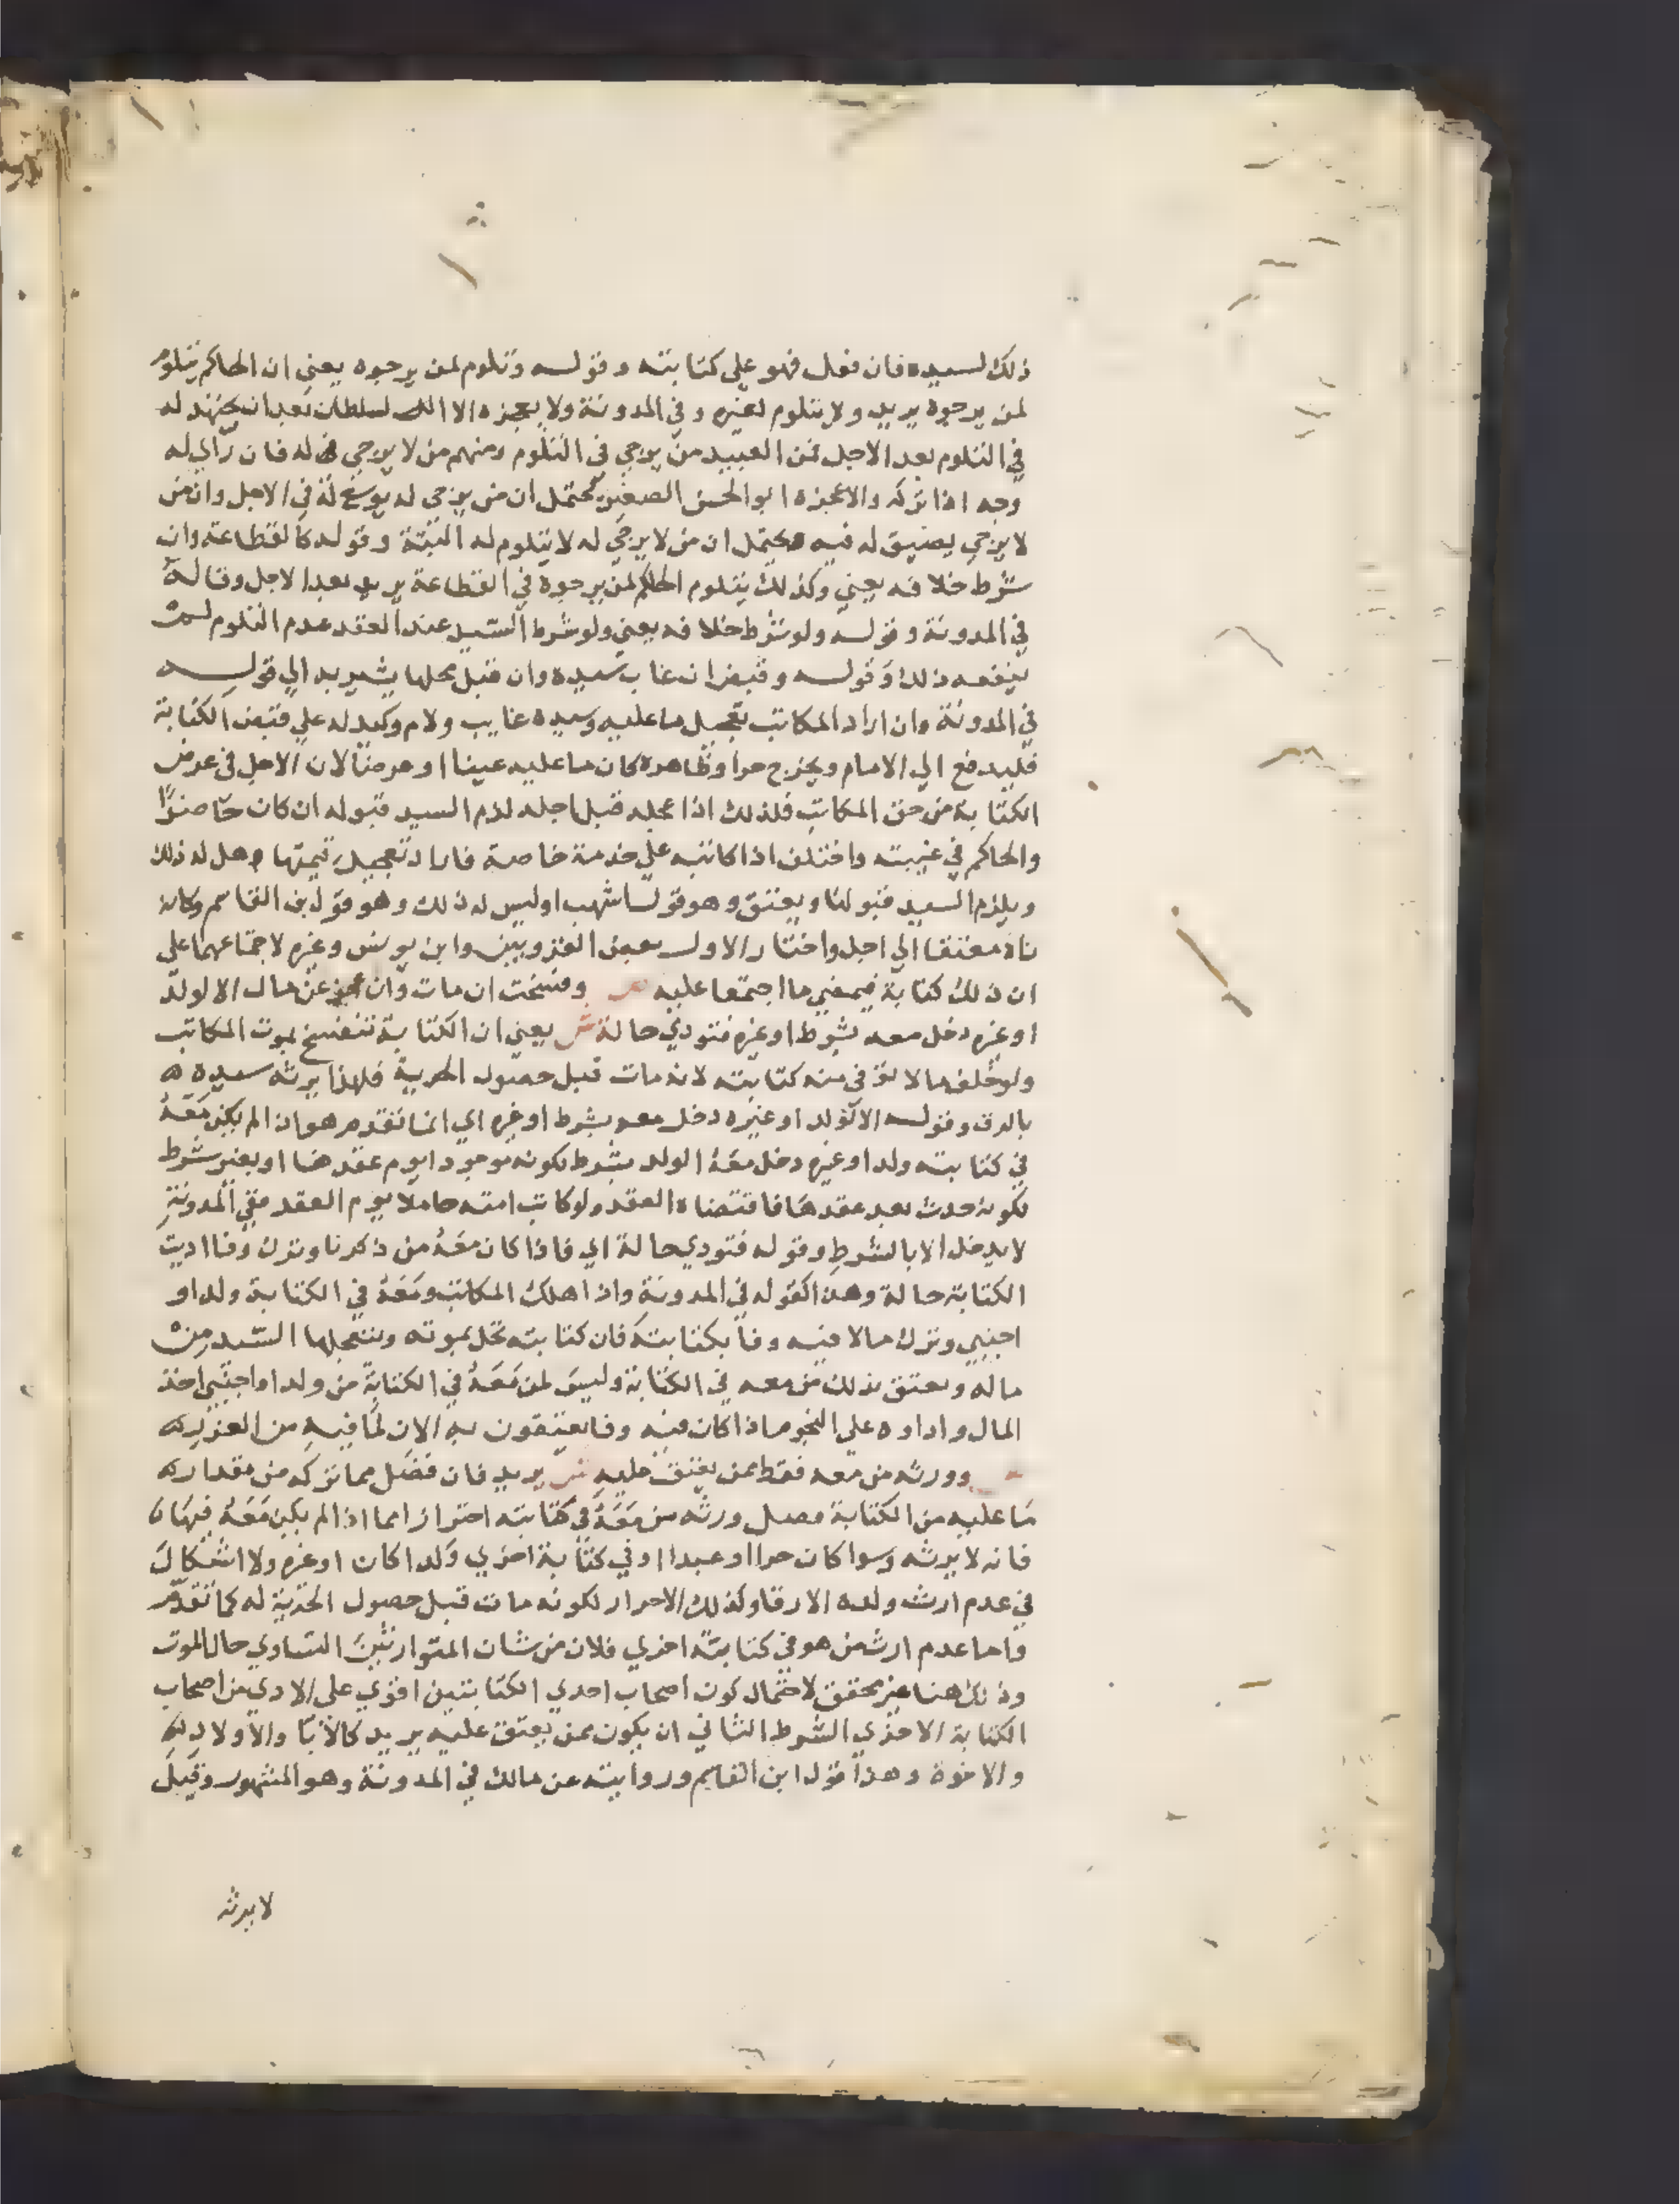 ذلك لسيده فان فعل فهو على كتابته وقوله وتلوم لمن يرجوه يعني ان الحاكم يتلوم
لمن يرجوه يريد ولا يتلوم لغيره وفي المدونة ولا يعجزه الا السلطان بعد ان يجتهد له
في التلوم بعد الاجل فمن العبيد من يرجي في التلوم ومنهم من لا يرجي له فان راي له
وجه اذا تركه والا عجزه ابو الحسن الصغير يحتمل ان من يرجي له يوسع له في الاجل وان من
لا يرجي يضيق له فيه ويحتمل ان من لا يرجي له لا يتلوم له البتة وقوله كالقطاعة وان
شرط خلافه يعني وكذلك يتلوم الحاكم لمن يرجوه في القطاعة يريد بعد الاجل وقاله
في المدونة وقوله ولو شرط خلافه يعني ولو شرط السيد عند العقد عدم التلوم لم
ينفعه ذلك وقوله وقبض ان غاب سيده وان قبل محلها يشير به الي قوله
في المدونة وان اراد المكاتب تعجيل ما عليه وسيده غايب ولا وكيل له علي قبض الكتابة
فليدفع الي الامام ويخرج حرا وظاهره كان ما عليه عينا او عرضا لان الاجل في عرض
الكتابة من حق المكاتب فلذلك اذا عجله قبل اجله لزم السيد قبوله ان كان حاضرًا
والحاكم في غيبته واختلف اذا كاتبه علي خدمة خاصة فاراد تعجيل قيمتها هل له ذلك
ويلزم السيد قبولها ويعتق وهو قول اشهب او ليس له ذلك وهو قول بن القاسم وكانه
ناد معتقا الي اجل واختار الاول بعض القرويين وابن يونس وغيره لاجتماعهما على
ان ذلك كتابة فيمضي ما اجتمعا عليه ص وفسخت ان مات وان عن مال الا لولد
او غيره دخل معه بشرط او غيره فتودي حالة ش يعني ان الكتابة تنفسخ بموت المكاتب
ولو خلف مالا يوفي منه كتابته لانه مات قبل حصول الحرية فلهذا يرثه سيده
بالرق وقوله الا لولد او غيره دخل معه بشرط او غيره اي انما تقدم هو اذا لم يكن معه
في كتابته ولد او غيره دخل معه الولد بشرط لكونه موجودا يوم عقدها او بغير شرط
لكونه حدث بعد عقدها فاقتضاه العقد ولو كاتب امته حاملا يوم العقد ففي المدونة
لا يدخل الا بالشرط وقوله فتودي حالة اي فاذا كان معه من ذكرنا وترك وفا اديت
الكتابة حالة وهذا كقوله في المدونة واذا هلك المكاتب ومعه في الكتابة ولد او
اجنبي وترك مالا فيه وفا بكتابته فان كتابته تحل بموته ويتعجلها السيد من
ماله ويعتق بذلك من معه في الكتابة وليس لمن معه في الكتابة من ولد او اجنبي اخذ
المال واداوه علي النجوم اذا كان فيه وفا يعتقون به الان لما فيه من الغرر
ص وورثه من معه فقط ممن يعتق عليه ش يريد فان فضل مما تركه من مقدار
ما عليه من الكتابة فضل ورثه من معه في كتابته احترازا مما اذا لم يكن معه فيها
فانه لا يرثه وسوا كان حرا او عبدا او في كتابة اخري ولدا كان او غيره ولا اشكال
في عدم ارث ولده الارقا وكذلك الاحرار لكونه مات قبل حصول الحرية له كما تقدم
واما عدم ارث من هو في كتابة اخري فلان من شان المتوارثين التساوي حال الموت
وذلك هنا غير محقق لاحتمال كون اصحاب احدي الكتابتين اقوي على الادي من اصحاب
الكتابة الاخري الشرط الثاني ان يكون ممن يعتق عليه يريد كالابا والاولاد
والاخوة وهذا قول ابن القاسم وروايته عن مالك في المدونة وهو المشهور وقيل
لا يرثه